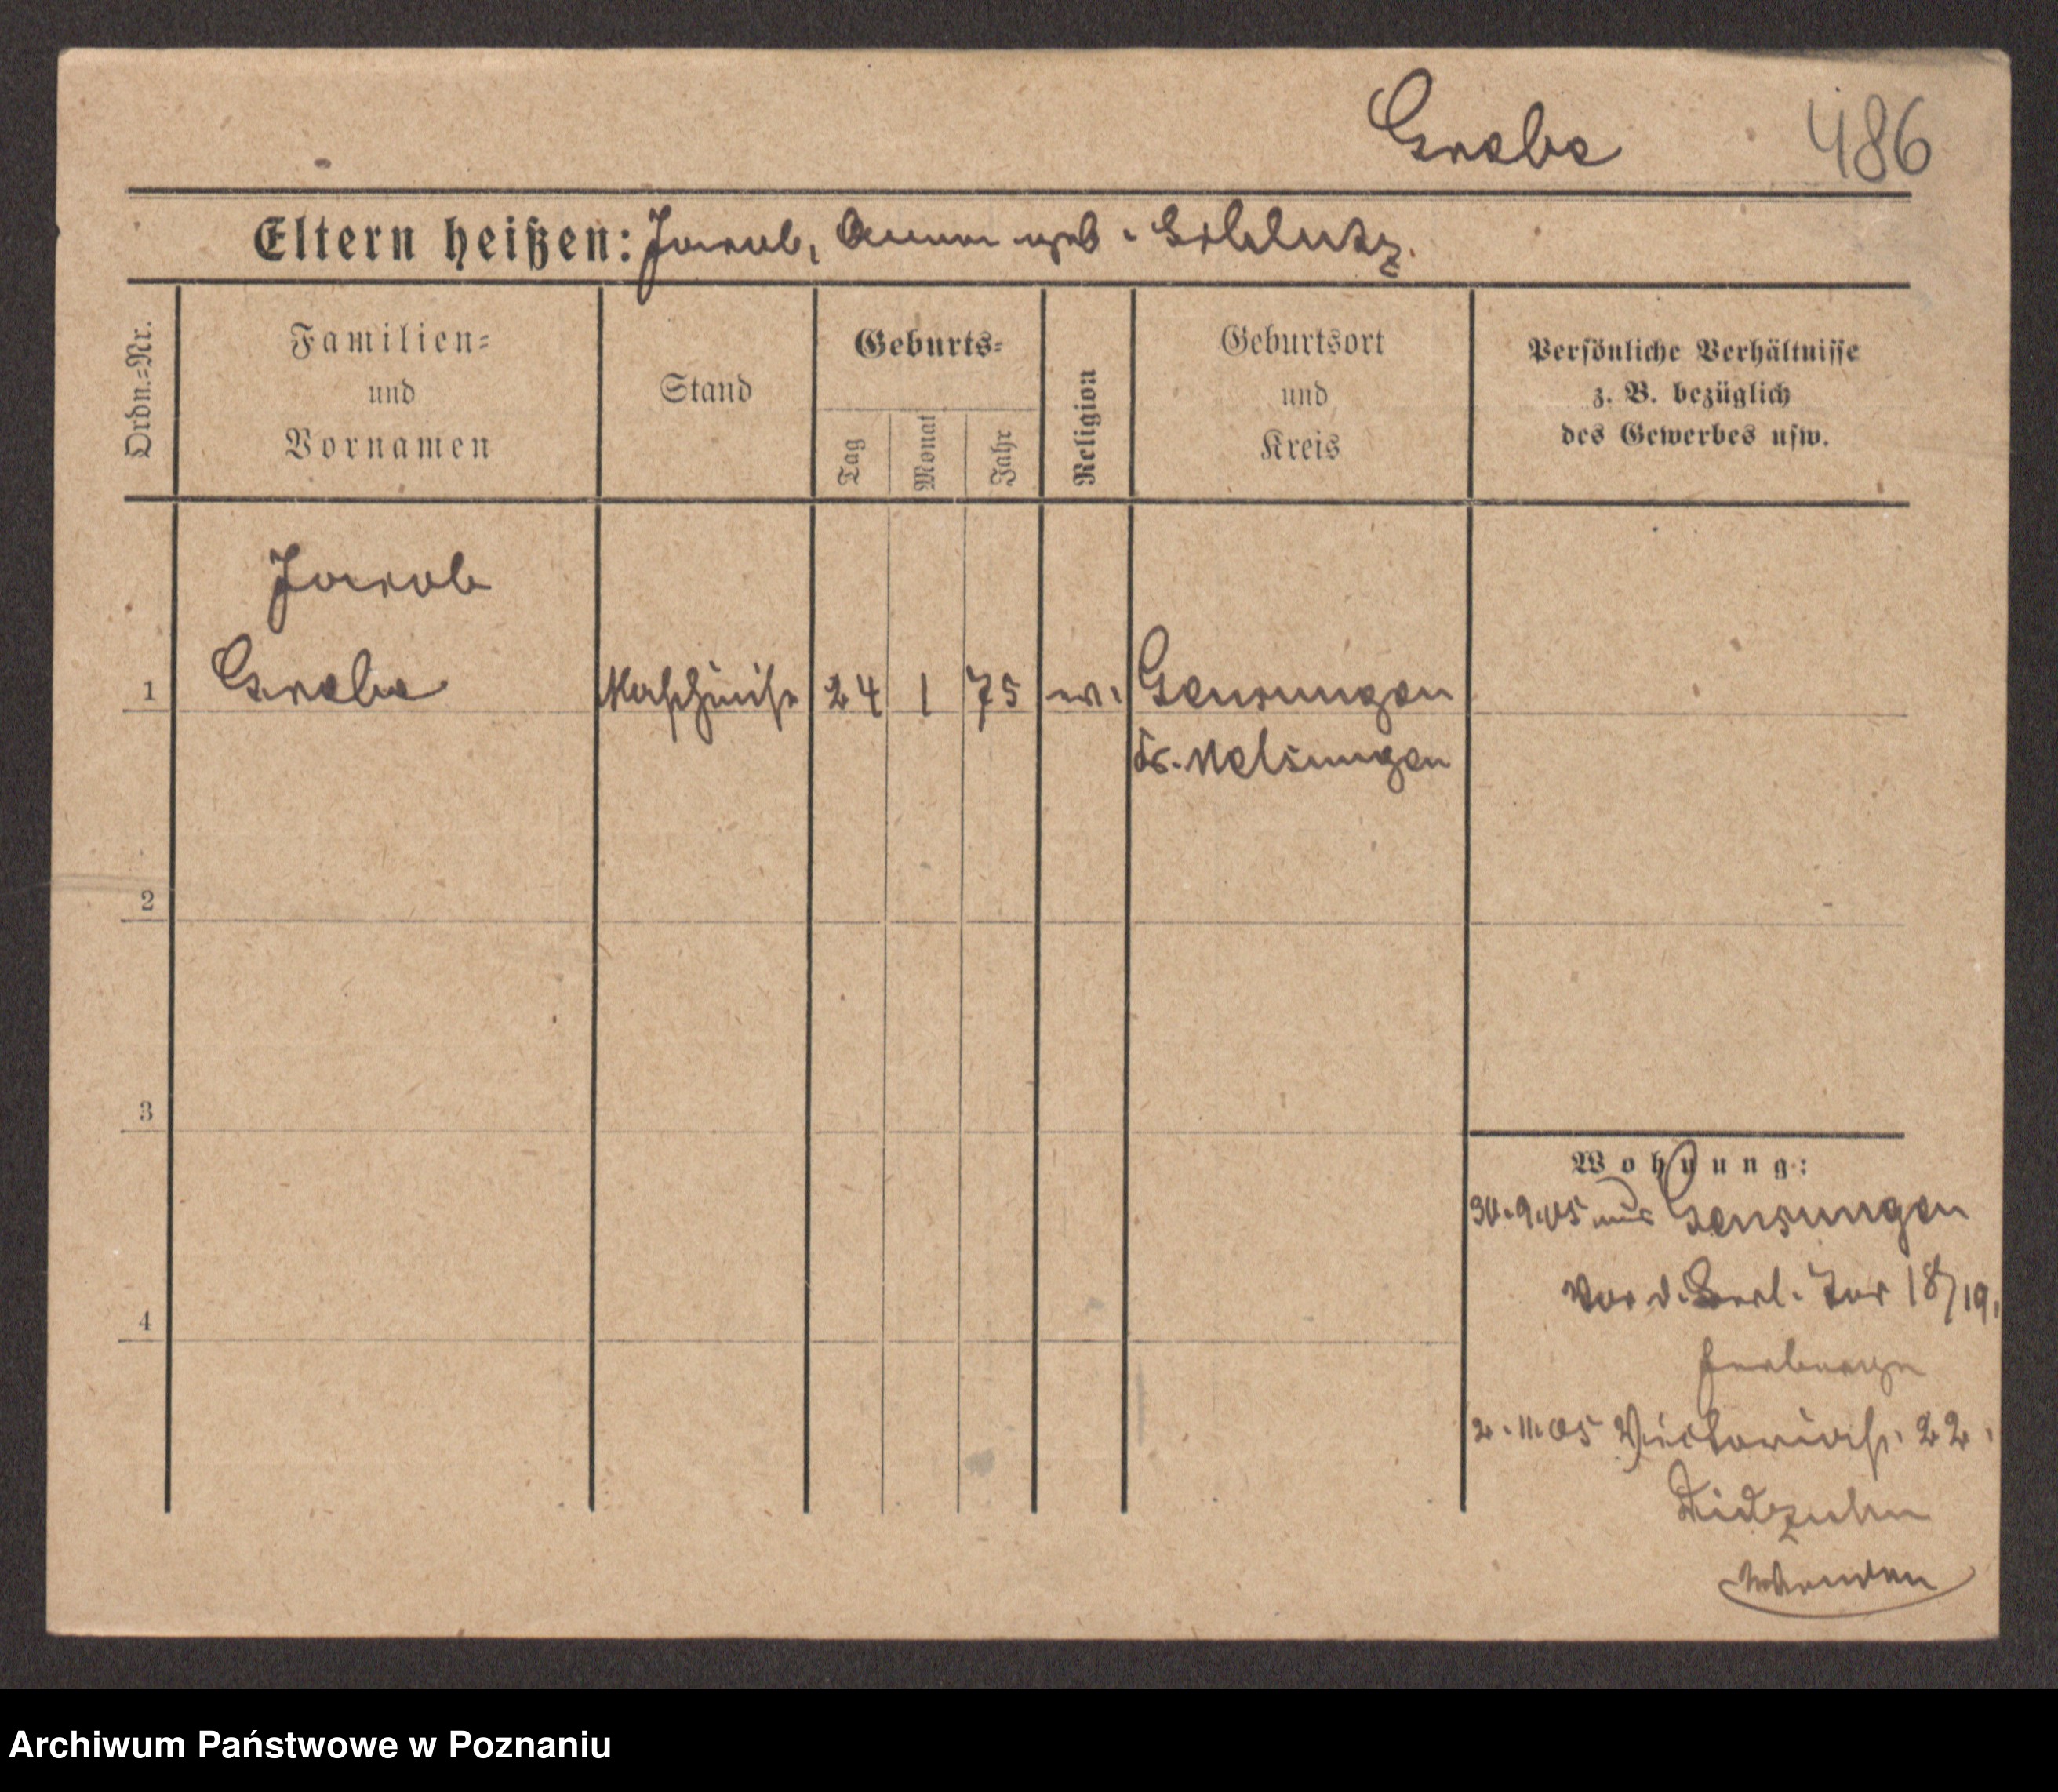 Grebe 486
Eltern heißen: Jacob, Anna geb.
Ordn.=Nr.
Familien=
und
Vornamen
Stand
Geburts=
Tag
Monat
Jahr
Religion
Geburtsort
und
Kreis
Persönliche Verhältnisse
z. B. bezüglich
des Gewerbes usw.
Jacob
1 Grebe Maschinist 24 1 75 ev. Gensungen
Kr. Melsungen
2
3
Wohnung:
30.9.05 aus Gensungen
Vor d. Berl. Tor 18/19.
4
2.11.05 Victoriastr. 22.
Archiwum Państwowe w Poznaniu